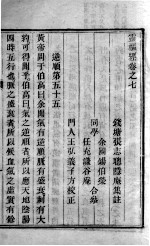 靈樞經卷之七
錢塘張志聰隱庵集註
同學
余國錫伯榮
合參
門人王弘義子方校正
逆順第五十五
黃帝問于伯高曰余聞氣有逆順脈有盛衰刺有大
約可得聞乎伯高曰氣之逆順者所以應天地陰陽
四時五行也脈之盛衰者所以候血氣之虛實有餘